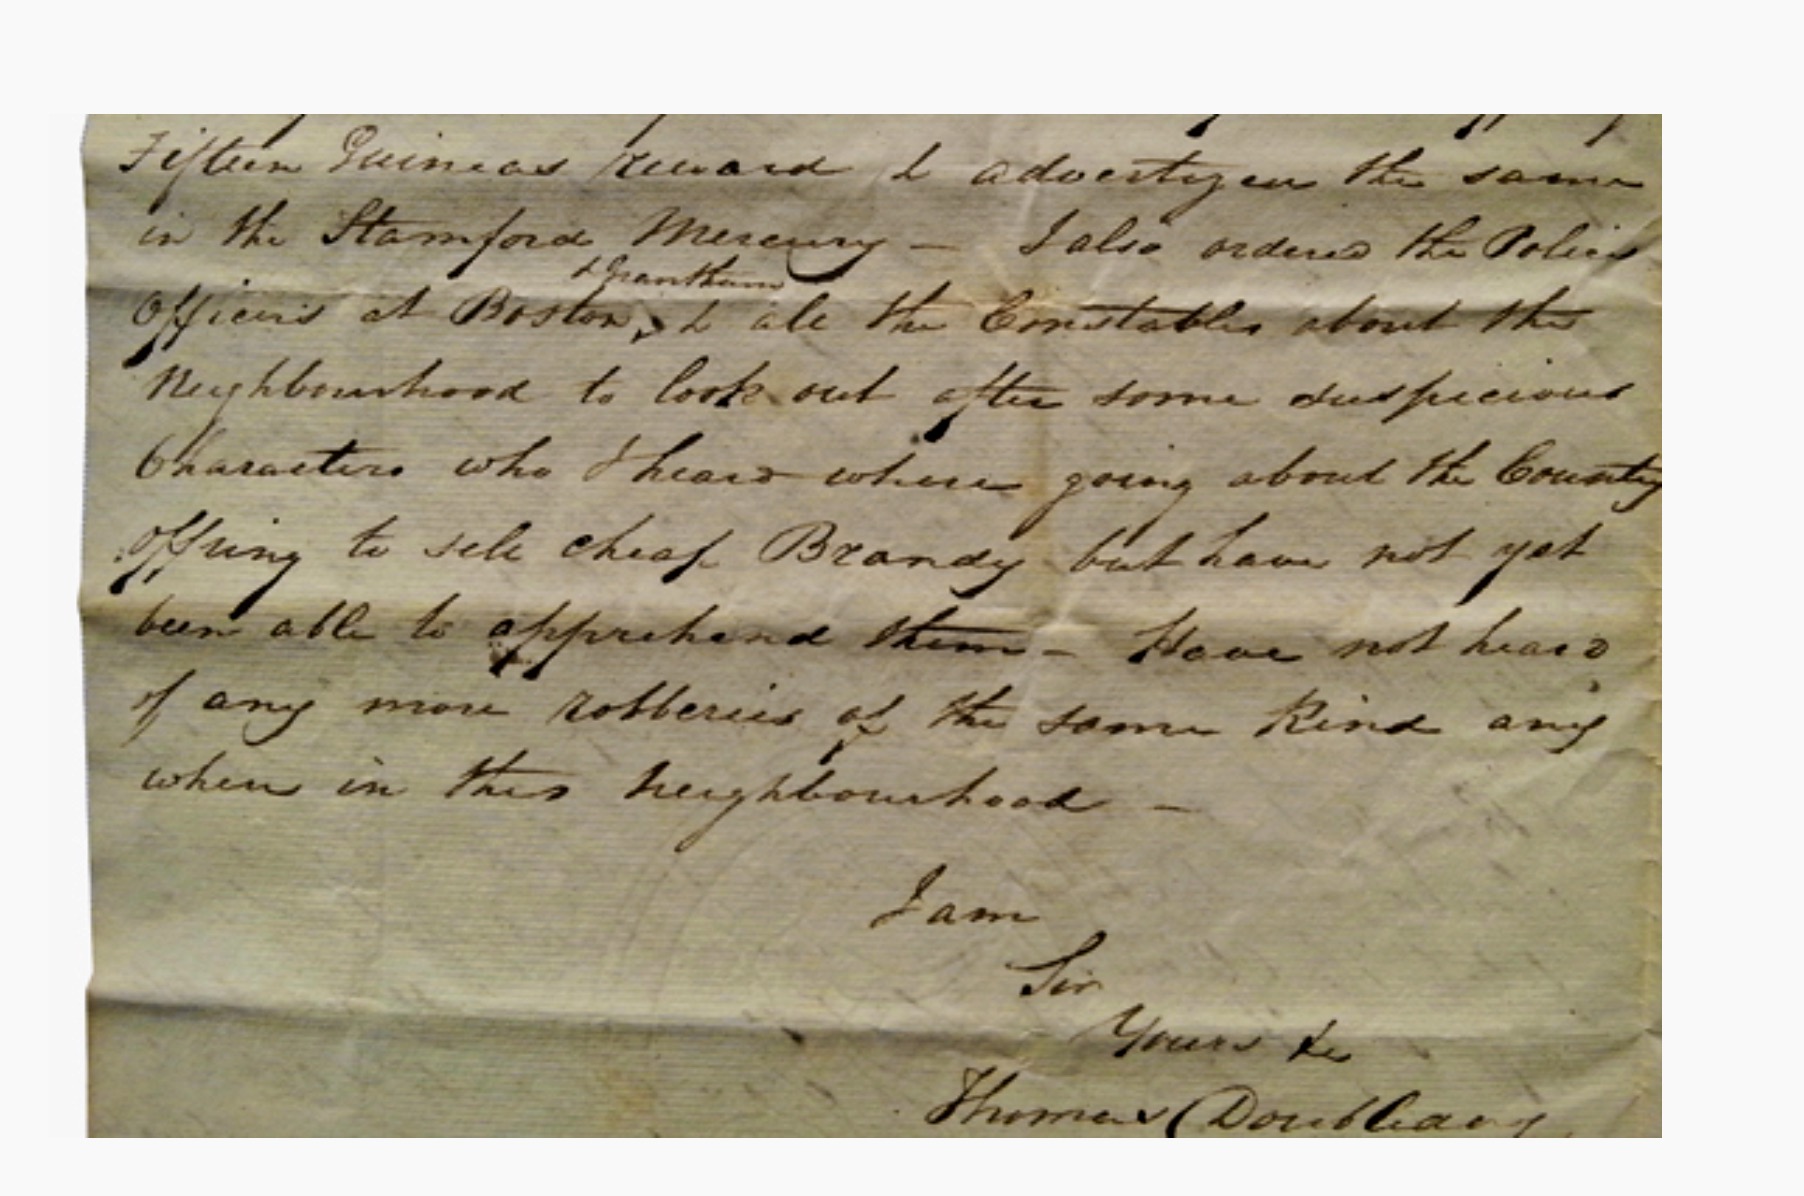 Fifteen Guineas reward & advertizen the same
in the Stamford Mercury – I also ordered the Police
& Grantham
Officers at Boston, & all the Constables about the
Neighbourhood to look out after some suspicious
Characters who I heard where going about the County
offring to sell cheap Brandy but have not yet
been able to apprehend them – Have not heard
of any more robberies of the same kind any
where in this neighbourhood –
I am
Sir
Yours &c
Thomas Doubleday